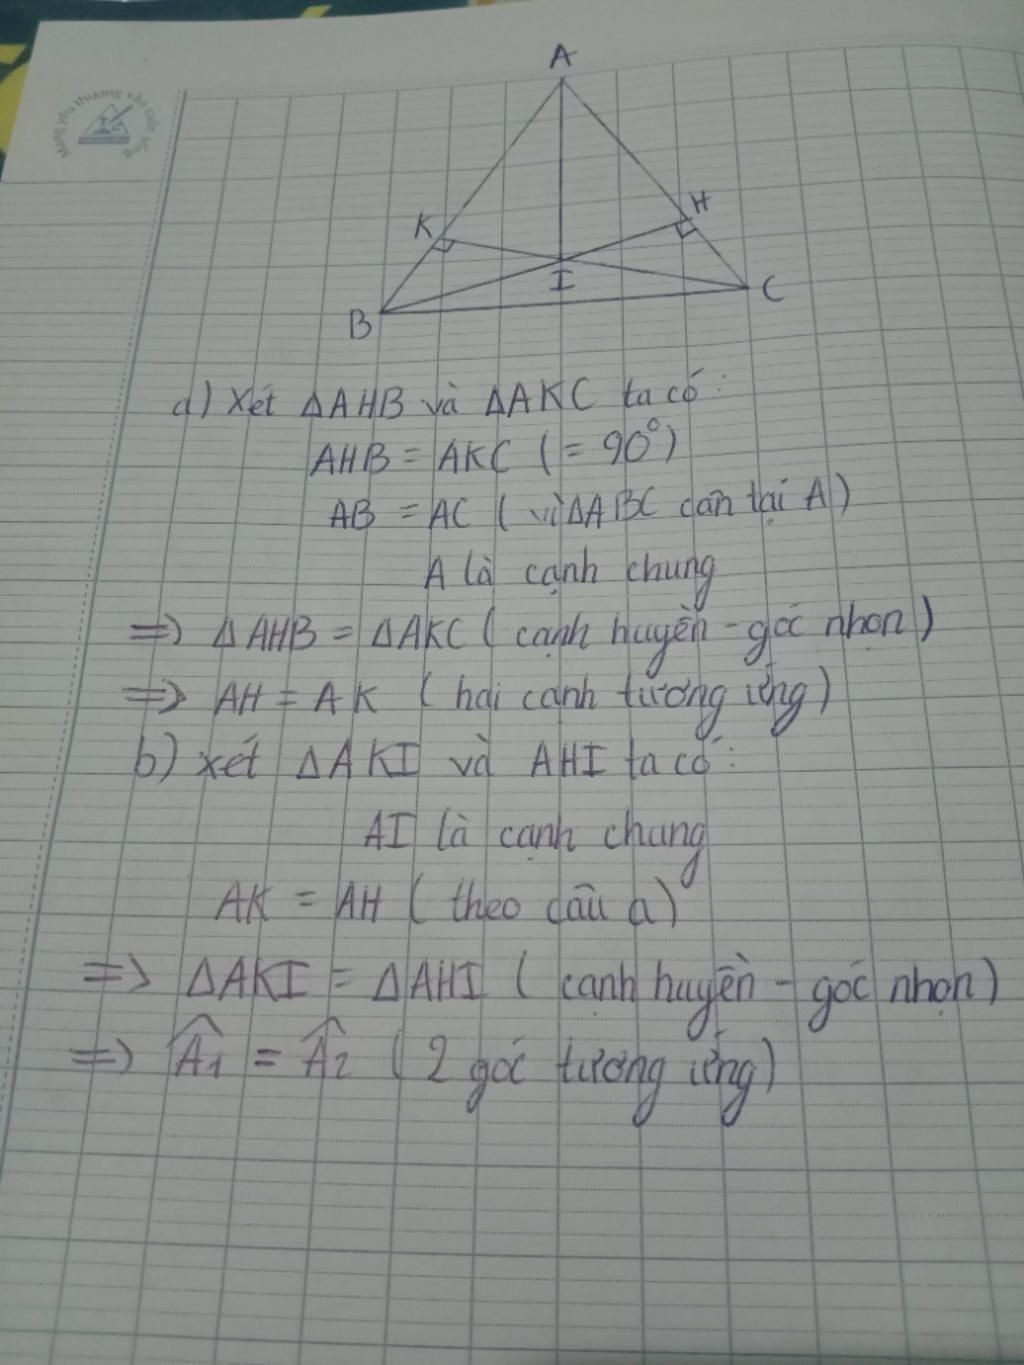 Mang yêu thương vào cuộc sống
A
K
H
I
B
C
a) Xét ΔAHB và ΔAKC ta có:
AHB = AKC (= 90°)
AB = AC ( vì ΔABC cân tại A)
A là cạnh chung
=> ΔAHB = ΔAKC ( cạnh huyền - góc nhọn )
=> AH = AK ( hai cạnh tương ứng)
b) xét ΔAKI và AHI ta có:
AI là cạnh chung
AK = AH ( theo câu a)
=> ΔAKI = ΔAHI ( cạnh huyền - góc nhọn )
=> Â1 = Â2 ( 2 góc tương ứng)